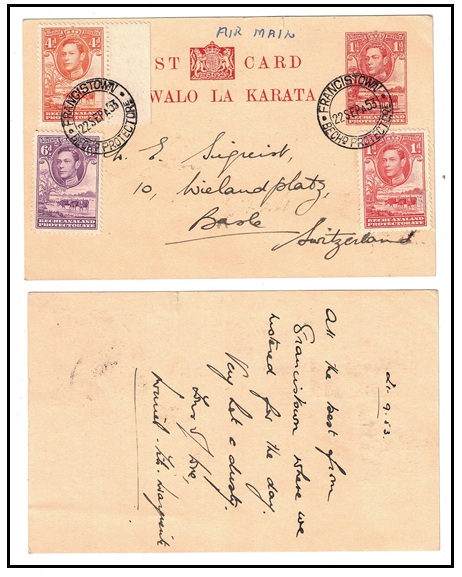 AIR MAIL
4d
ST CARD
1d
WALO LA KARATA
FRANCISTOWN
22 SEP 53
BECH. PROTECTORATE
FRANCISTOWN
22 SEP 53
BECHD PROTECTORATE
6d
BECHUANALAND
PROTECTORATE
1d
BECHUANALAND
PROTECTORATE
E. Sigrist,
10, Wielandplatz,
Basle
Switzerland
21.9.53
All the best from
Francistown where we
for the day.
Very hot & dusty.
Love